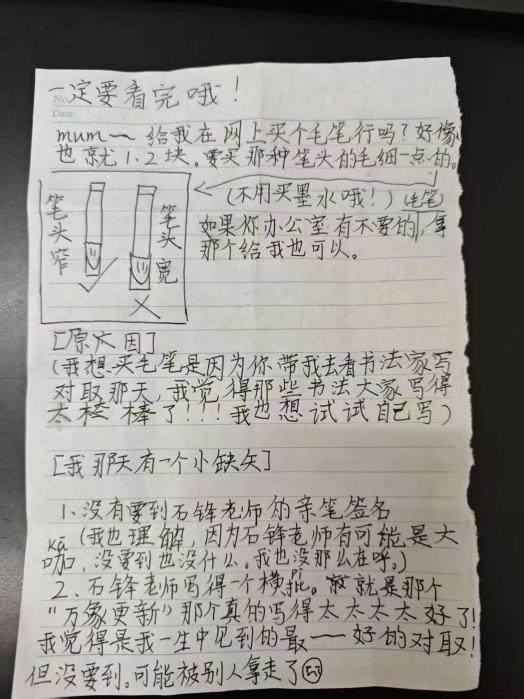 一定要看完哦！
No.
Date
mum～ 给我在网上买个毛笔行吗？好像
也就1、2块。要买那种笔头的毛细一点的。
（不用买墨水哦！）（毛笔）
如果你办公室有不要的，拿
那个给我也可以。
笔头窄
笔头宽
[原因]
（我想买毛笔是因为你带我去看书法家写
对取那天，我觉得那些书法大家写得
太棒棒了！！！我也想试试自己写）
[我那天有一个小缺矢]
1、没有要到石锋老师的亲笔签名
kā（我也理解，因为石锋老师有可能是大
咖，没要到也没什么。我也没那么在呼。）
2、石锋老师写得一个横批。就是那个
“万象更新”那个真的写得太太太太好了！
我觉得是我一生中见到的最——好的对取！
但没要到。可能被别人拿走了